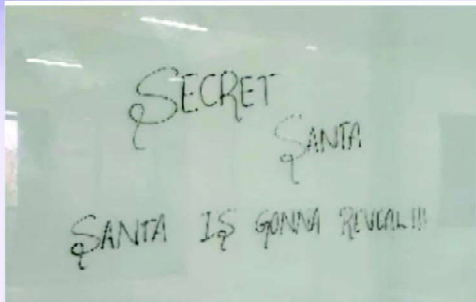 SECRET
SANTA
SANTA IS GONNA REVEAL!!!